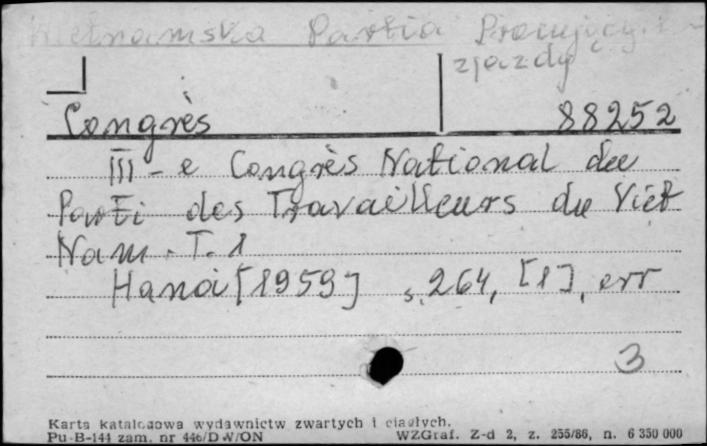 Wietnamska Partia Pracujących
zjazdy
Congrès 88252
III-e Congrès National du
Parti des Travailleurs du Viet
Nam. T. 1
Hanoi [1959] s. 264, [1], err
3
Karta katalogowa wydawnictw zwartych i ciągłych.
Pu-B-144 zam. nr 446/DW/ON WZGraf. Z-d 2, z. 255/86, n. 6 350 000